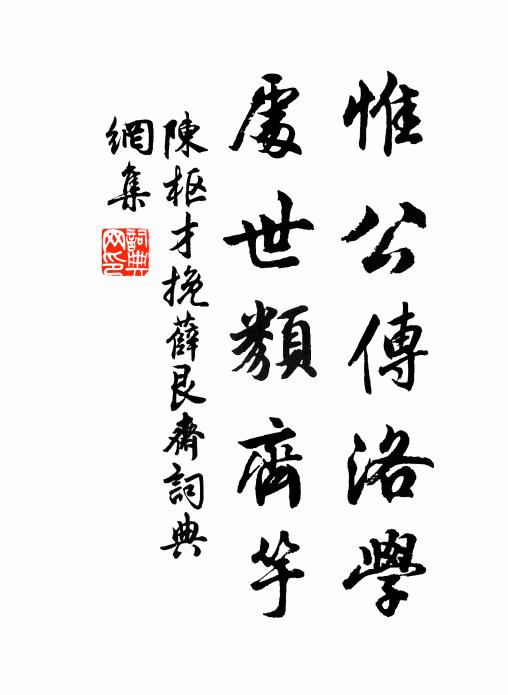 惟公傳洛學
處世類齊竽
陳枢才挽薛艮齋詞典
網集
詞典網印